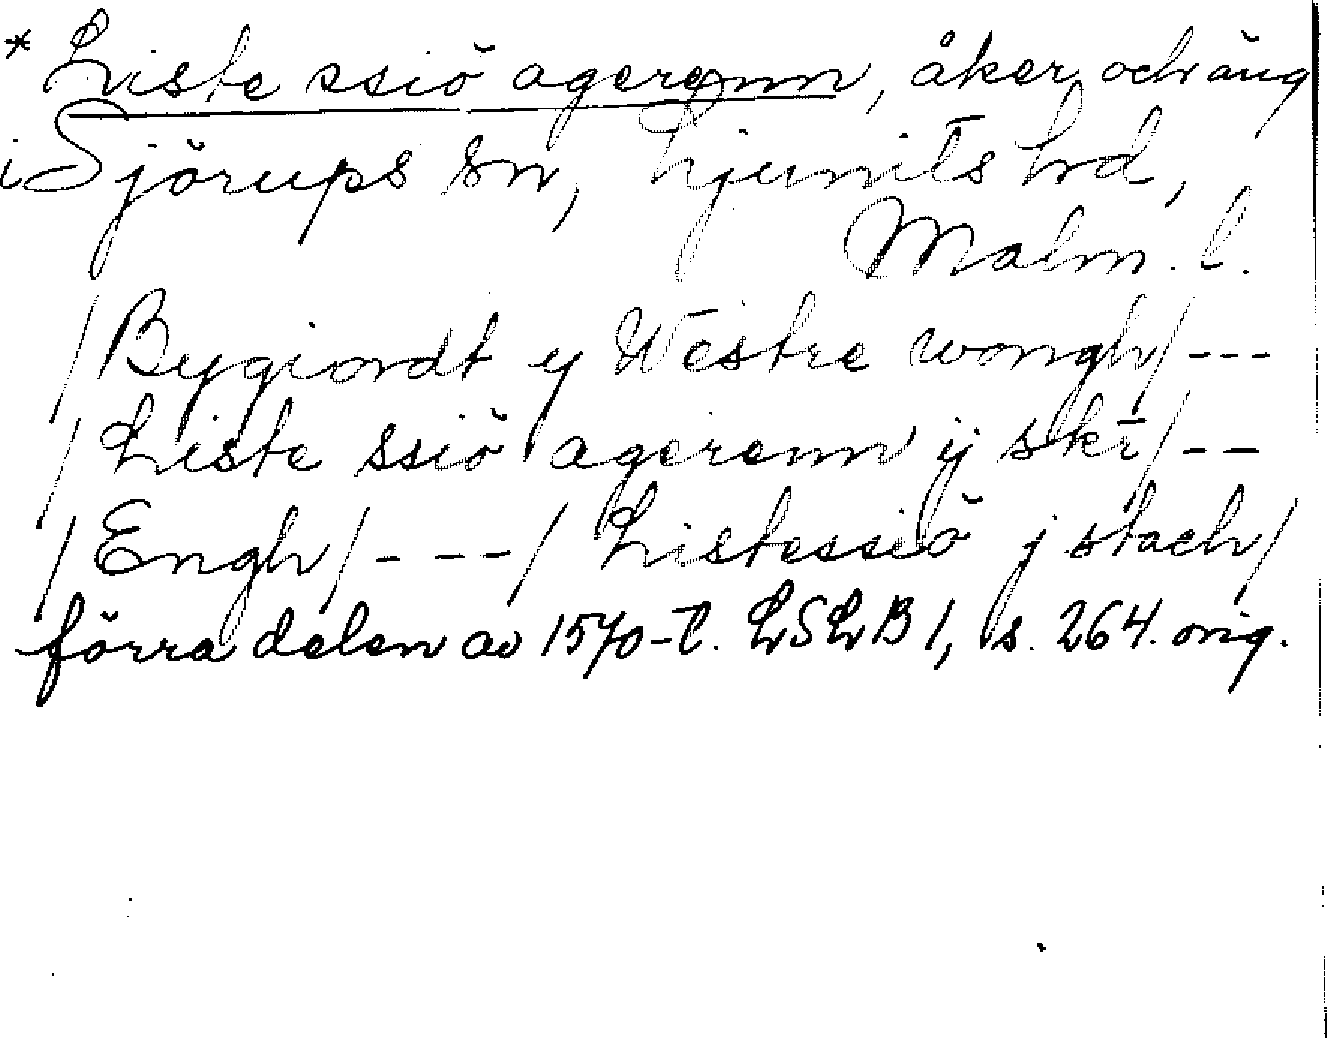 * Liste ssiö agerenn, åker och äng
i Sjörups sn, Ljunits hd,
Malm. l.
/Bygiordt y Westre wongh/---
/Liste ssiö agerenn ij skr/--
/Engh/---/Listessiö j stach/
förra delen av 1570-t. LSLB 1, s. 264. orig.